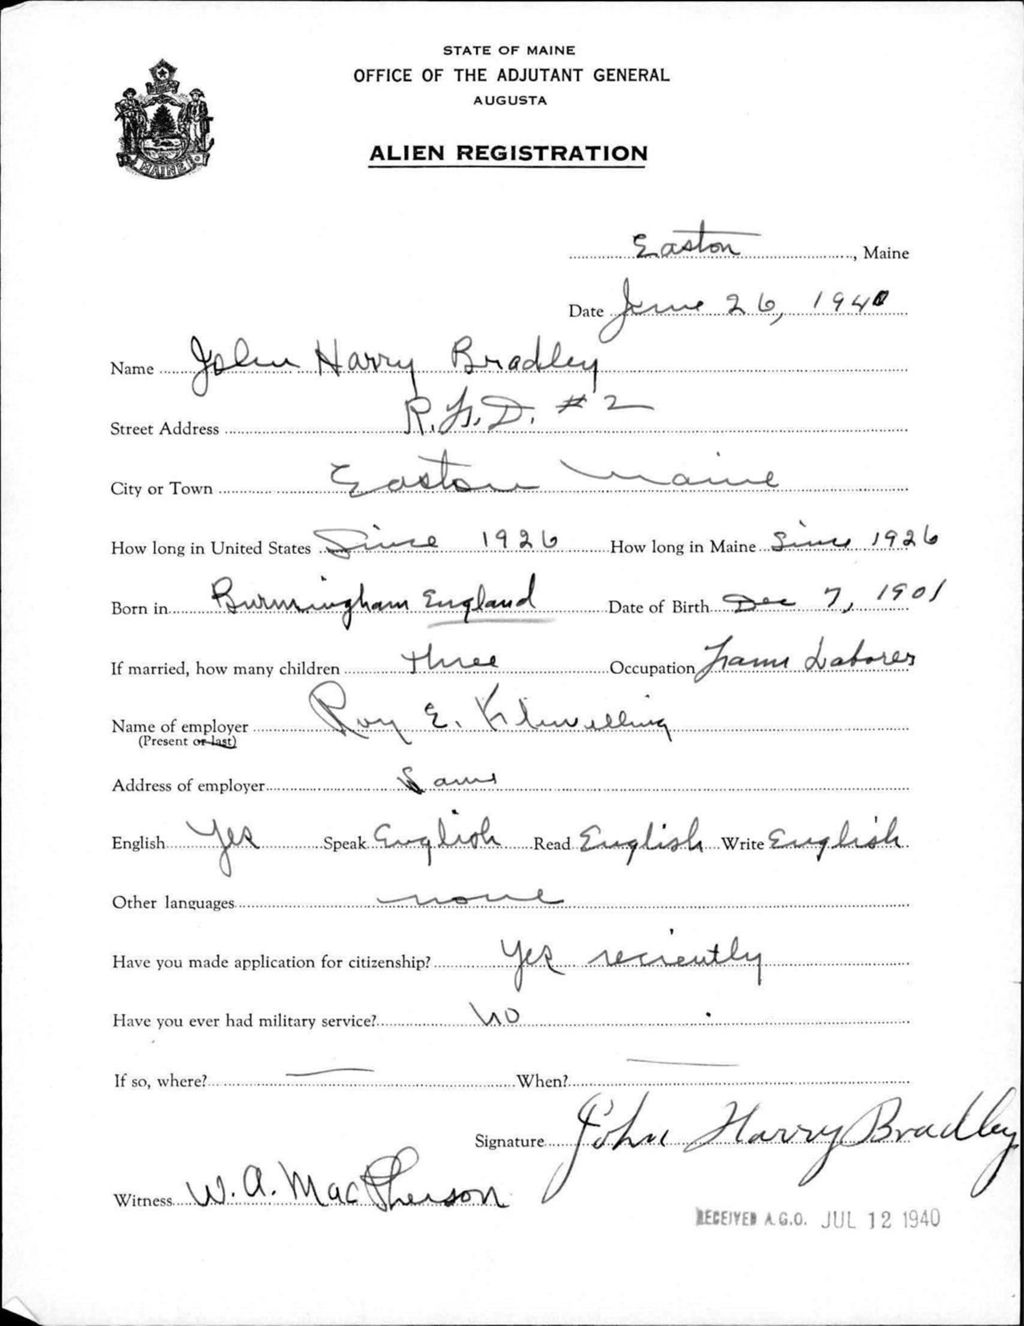 STATE OF MAINE
OFFICE OF THE ADJUTANT GENERAL
AUGUSTA
ALIEN REGISTRATION
MAINE
Easton, Maine
Date June 26, 1940
Name John Harry Bradley
Street Address R.F.D. #2
City or Town Easton Maine
How long in United States Since 1926 How long in Maine Since 1926
Born in Burmingham England Date of Birth Dec 7, 1901
If married, how many children three Occupation Farm Laborer
Name of employer Roy E.
(Present or last)
Address of employer Same
English Yes Speak English Read English Write English
Other languages none
Have you made application for citizenship? Yes reciently
Have you ever had military service? No
If so, where? — When? —
Signature John Harry Bradley
Witness W. A. MacPherson
RECEIVED A.G.O. JUL 12 1940